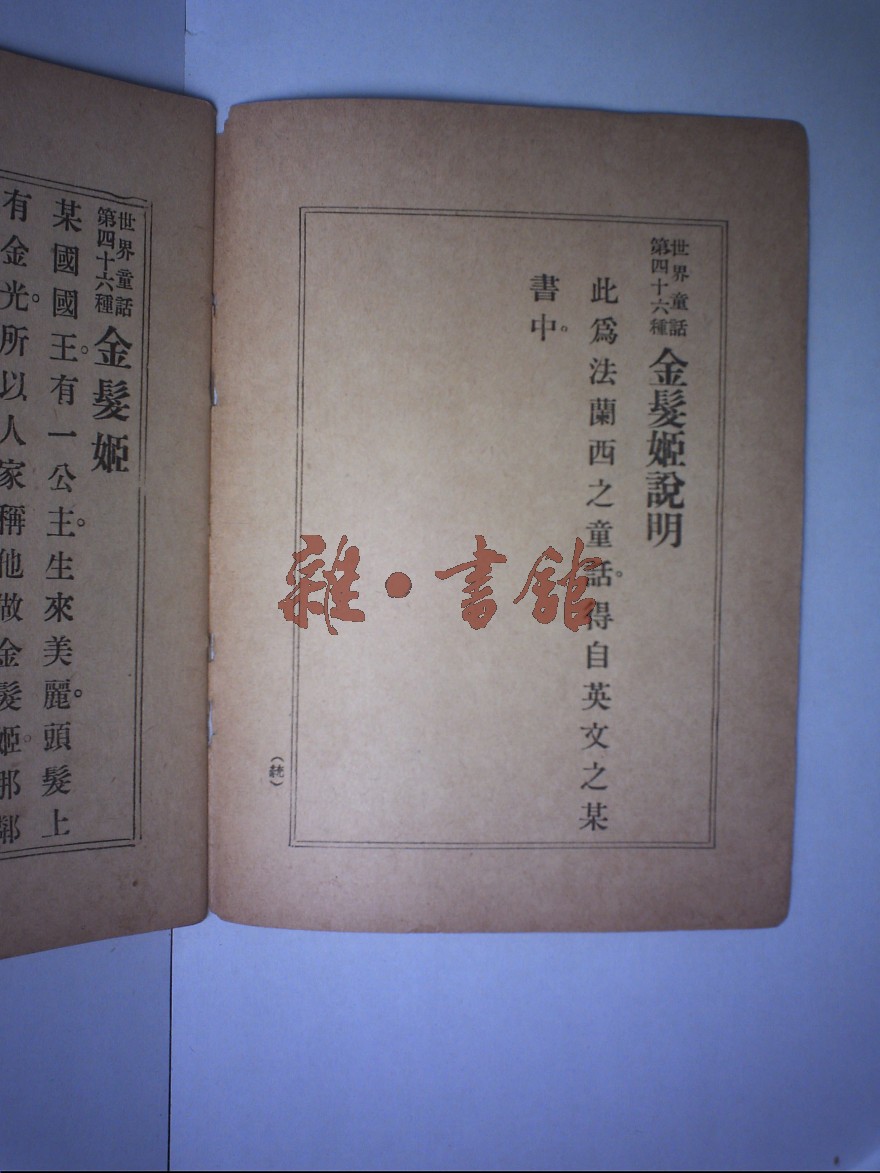 世界童話
第四十六種
金髮姬說明
此爲法蘭西之童話。得自英文之某
書中。
（統）
世界童話
第四十六種
金髮姬
某國國王。有一公主。生來美麗。頭髮上
有金光。所以人家稱他做金髮姬。那鄰
雜•書館